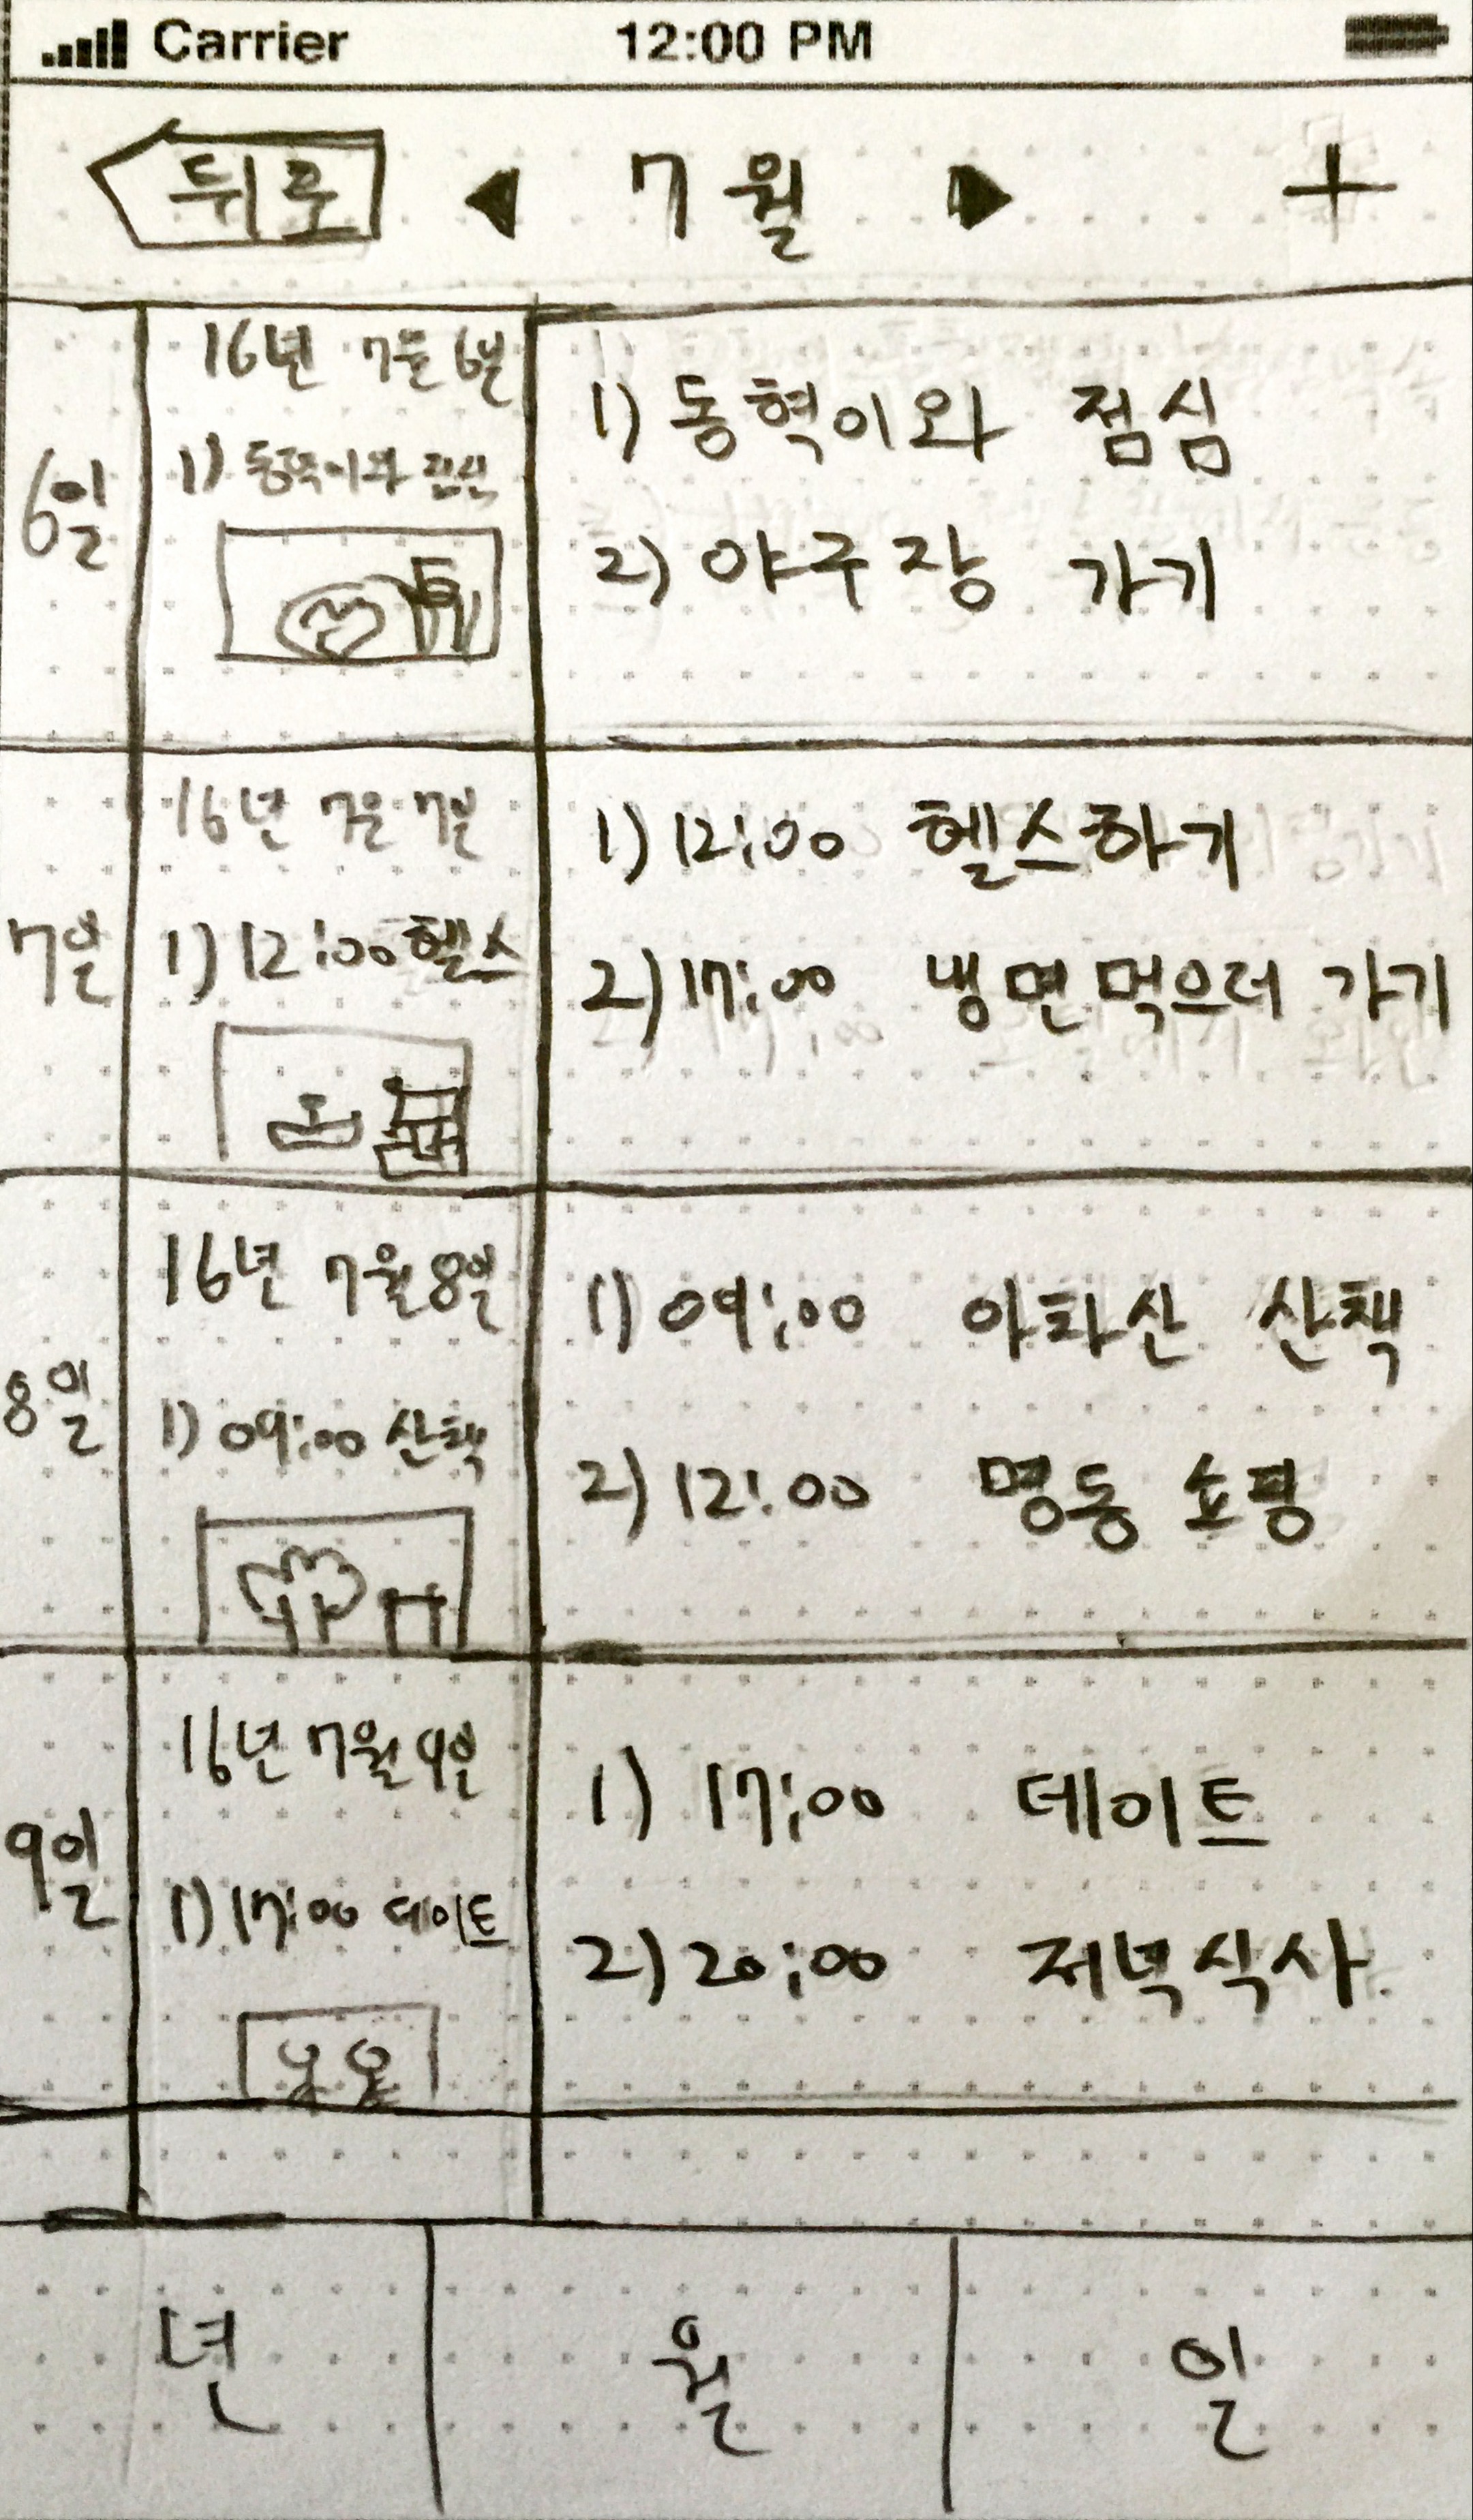 Carrier 12:00 PM
뒤로 ◀ 7월 ▶ +
6일
16년 7월 6일
1) 동혁이와 점심
1) 동혁이와 점심
2) 야구장 가기
7일
16년 7월 7일
1) 12:00 헬스
1) 12:00 헬스하기
2) 17:00 냉면 먹으러 가기
8일
16년 7월 8일
1) 09:00 산책
1) 09:00 아차산 산책
2) 12:00 명동 쇼핑
9일
16년 7월 9일
1) 17:00 데이트
1) 17:00 데이트
2) 20:00 저녁식사
년 월 일